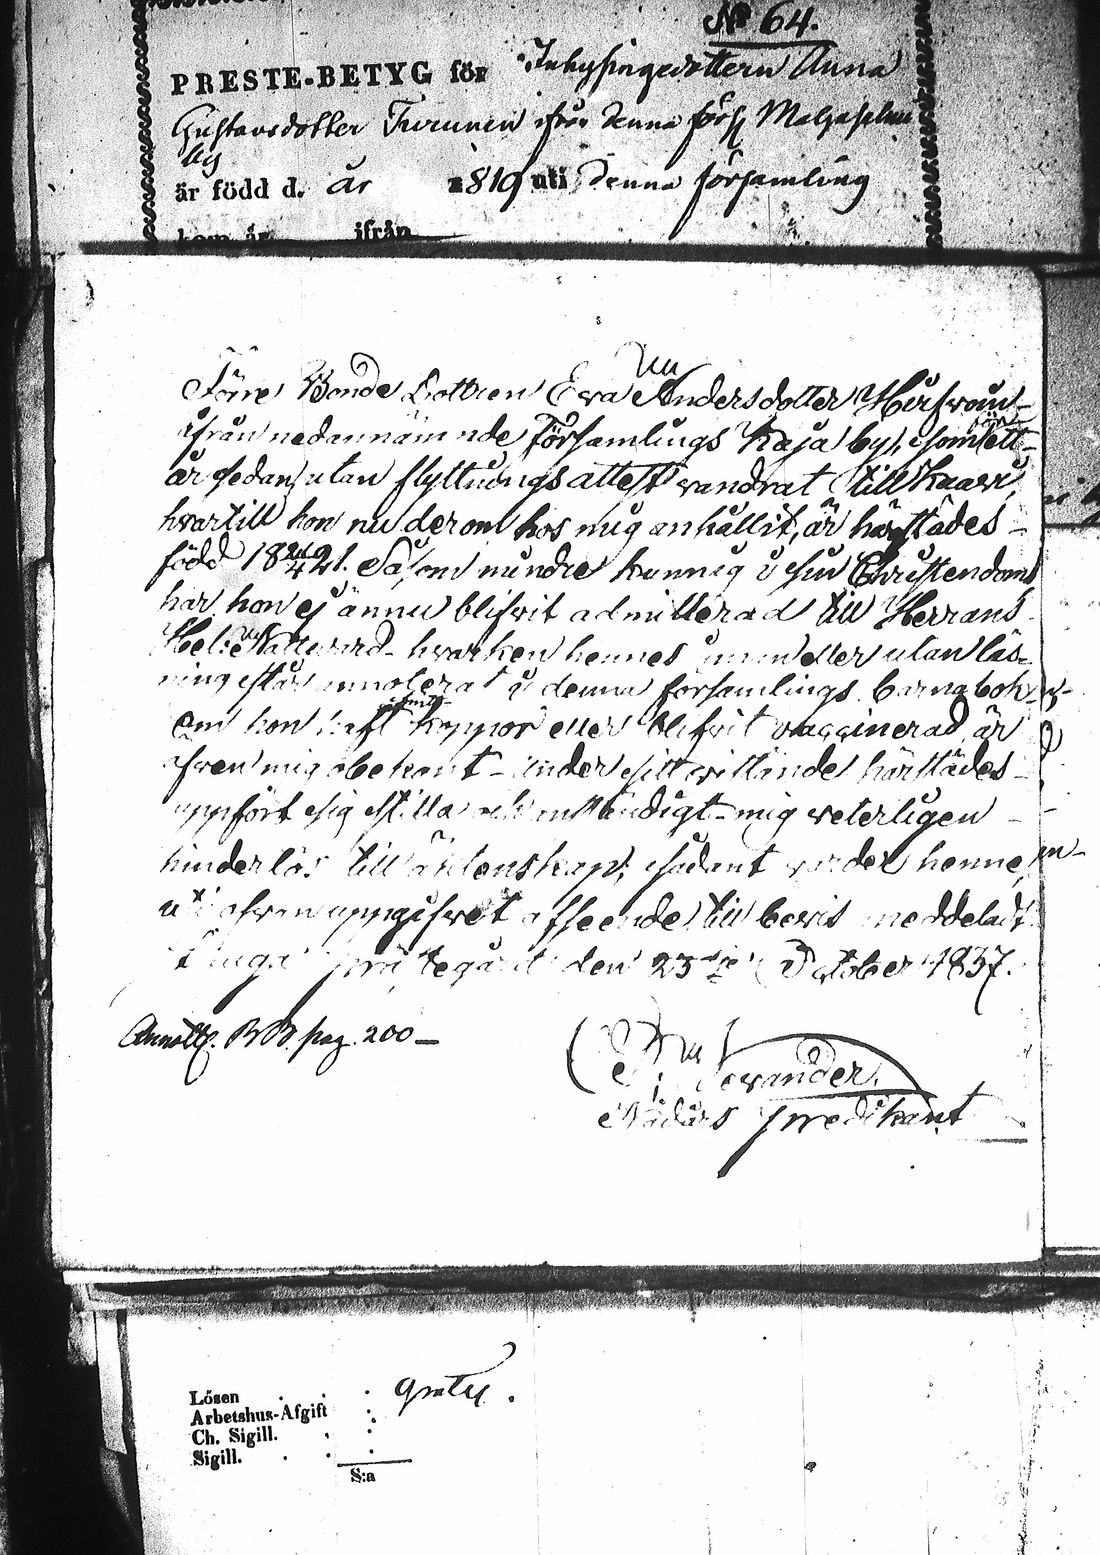 No 64.
PRESTE-BETYG för Inhysingedottern Anna
Gustavsdotter Turunen ifrån denna förs
by
är född d. år 1819 uti denna församling
kom år ifrån
Förre Bonde Dottren Eva Andersdotter
ifrån nedannämnde Församlings Kaja by, som för ett
år sedan utan flyttnings attest vandrat till Kaavi,
hvartill hon nu derom hos mig anhållit, är härstädes
född 1821. Såsom mindre kunnig i sin Christendom
har hon ej ännu blifvit admitterad till Herrans
Hel: Nattvard - hvarken hennes innan eller utan läs-
ning står annoterat i denna församlings barnabok
om hon haft koppor eller blifvit vaccinerad, är
äfven mig obekant - under sitt vistande härstädes
uppfört sig stilla och anständigt - mig veterligen
hinderlös till äktenskap; sådant varder henne,
uti ofvanuppgifvet afseende till bevis meddeladt
prästegård den 23dje October 1837.
Annott. BB. pag. 200 —
Nådårs predikant
Lösen . . . gratis.
Arbetshus-Afgift :
Ch. Sigill. . .
Sigill. . . .
S:a